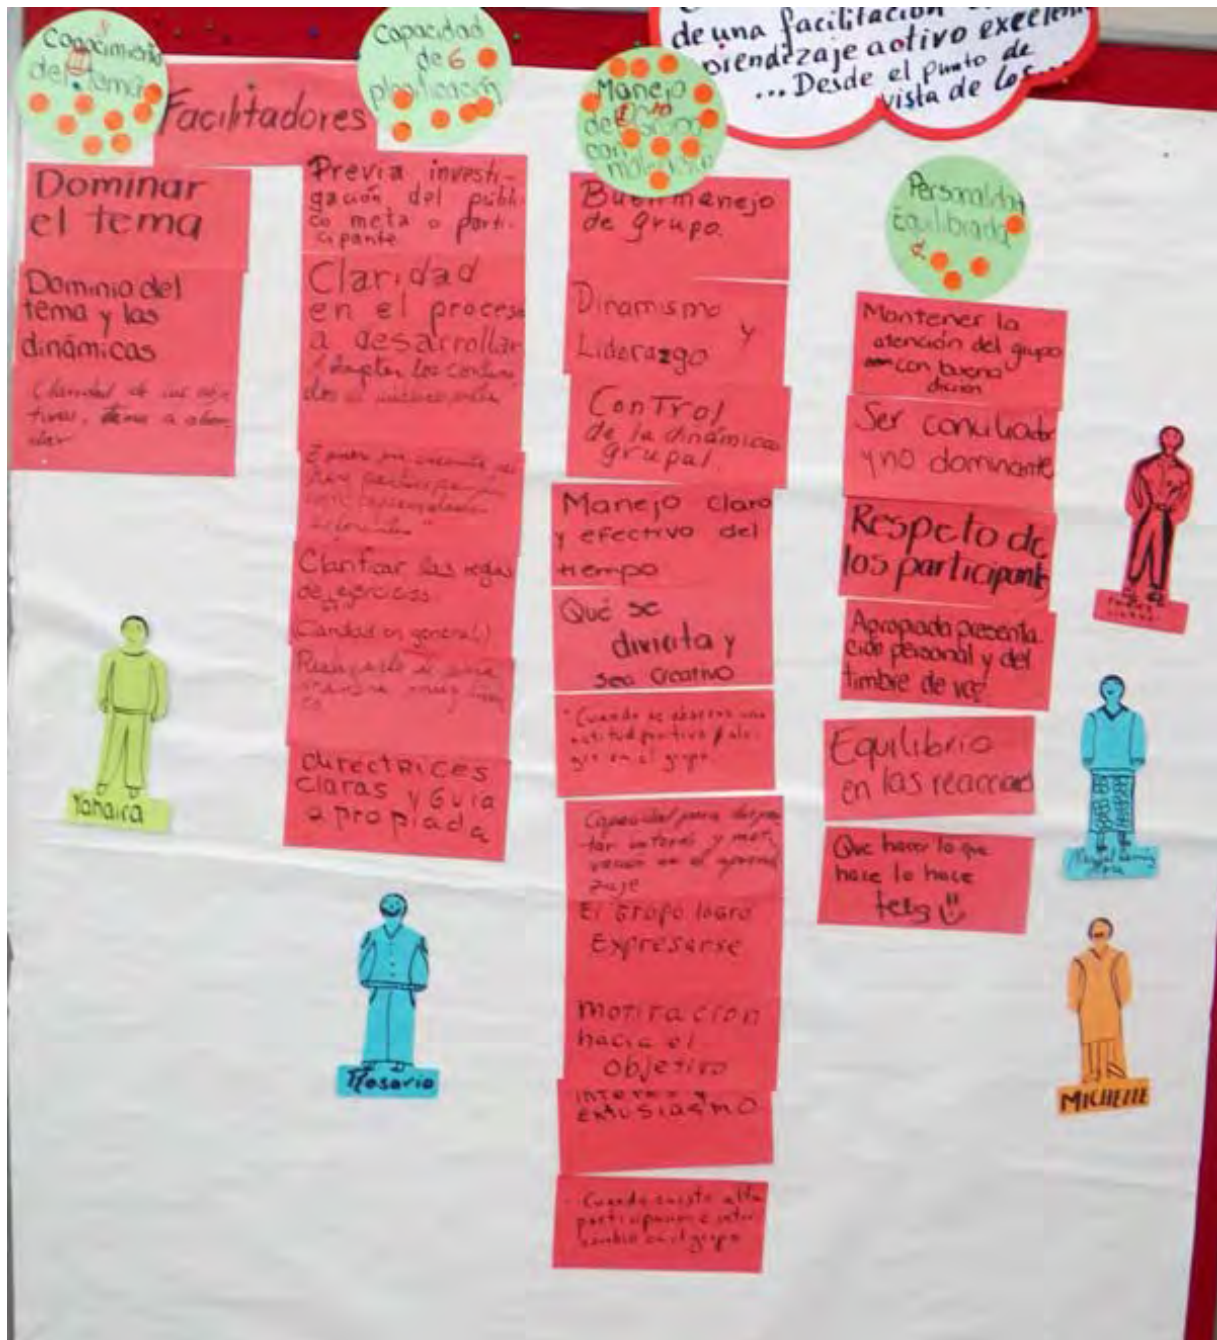 de una facilitación
aprendizaje activo excelen
... Desde el punto de
vista de los
Facilitadores
Conocimiento
del tema
8
Dominar
el tema
Dominio del
tema y las
dinámicas
Claridad de los obje
tivos, tema a abor
dar
Capacidad
de 6
planificación
Previa investi-
gación del públi
co meta o parti-
cipante
Claridad
en el proceso
a desarrollar
Clarificar las reglas
de ejercicios
(Claridad en general)
directrices
claras y Guía
apropiada
Manejo
de
con
Buen manejo
de grupo.
Dinamismo
y
Liderazgo
Control
de la dinámica
grupal
Manejo claro
y efectivo del
tiempo
Qué se
divierta y
sea creativo
"Cuando se observa una
actitud positiva y ale-
gre en el grupo.
Capacidad para desper
tar interés y moti
vación en el aprendi
zaje
El grupo logró
Expresarse
motivación
hacia el
objetivo
interes y
entusiasmo
Cuando existe alta
participación e inter
cambio en el grupo
Personalidad
Equilibrada
4
Mantener la
atención del grupo
con buena
dicción
Ser conciliador
y no dominante
Respeto de
los participante
Apropiada presenta
ción personal y del
timbre de voz
Equilibrio
en las reacciones
Que hacer lo que
hace lo hace
feliz
Yahaira
Rosario
MICHELLE